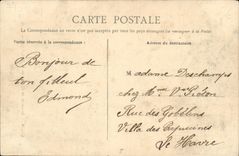 CARTE POSTALE
La Correspondance au verso n'est pas acceptée par tous les pays étrangers (Se renseigner à la Poste)
Partie réservée à la correspondance :
Adresse du destinataire.
Bonjour de
ton filleul
Edmond
Madame Deschamps
chez Mme Vve
Rue des Gobelins
Villa des Capucines
Le Havre